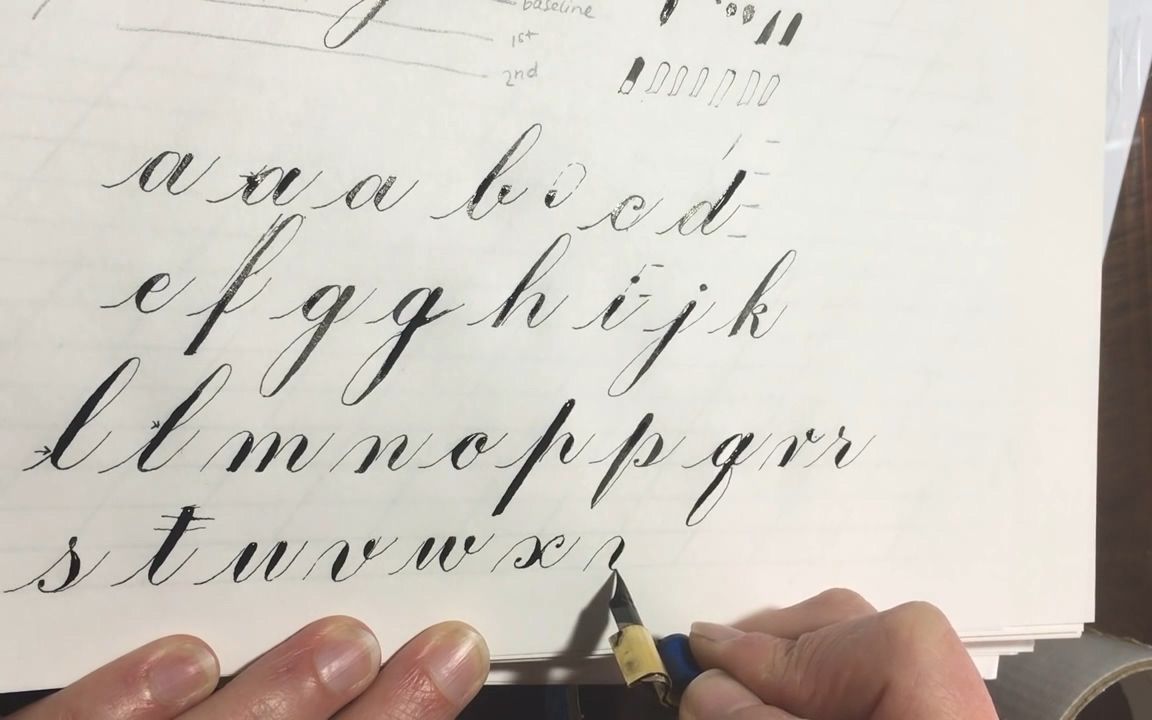 baseline
1st
2nd
a a a b c d
e f g g h i j k
l l m n o p p q r r
s t u v w x